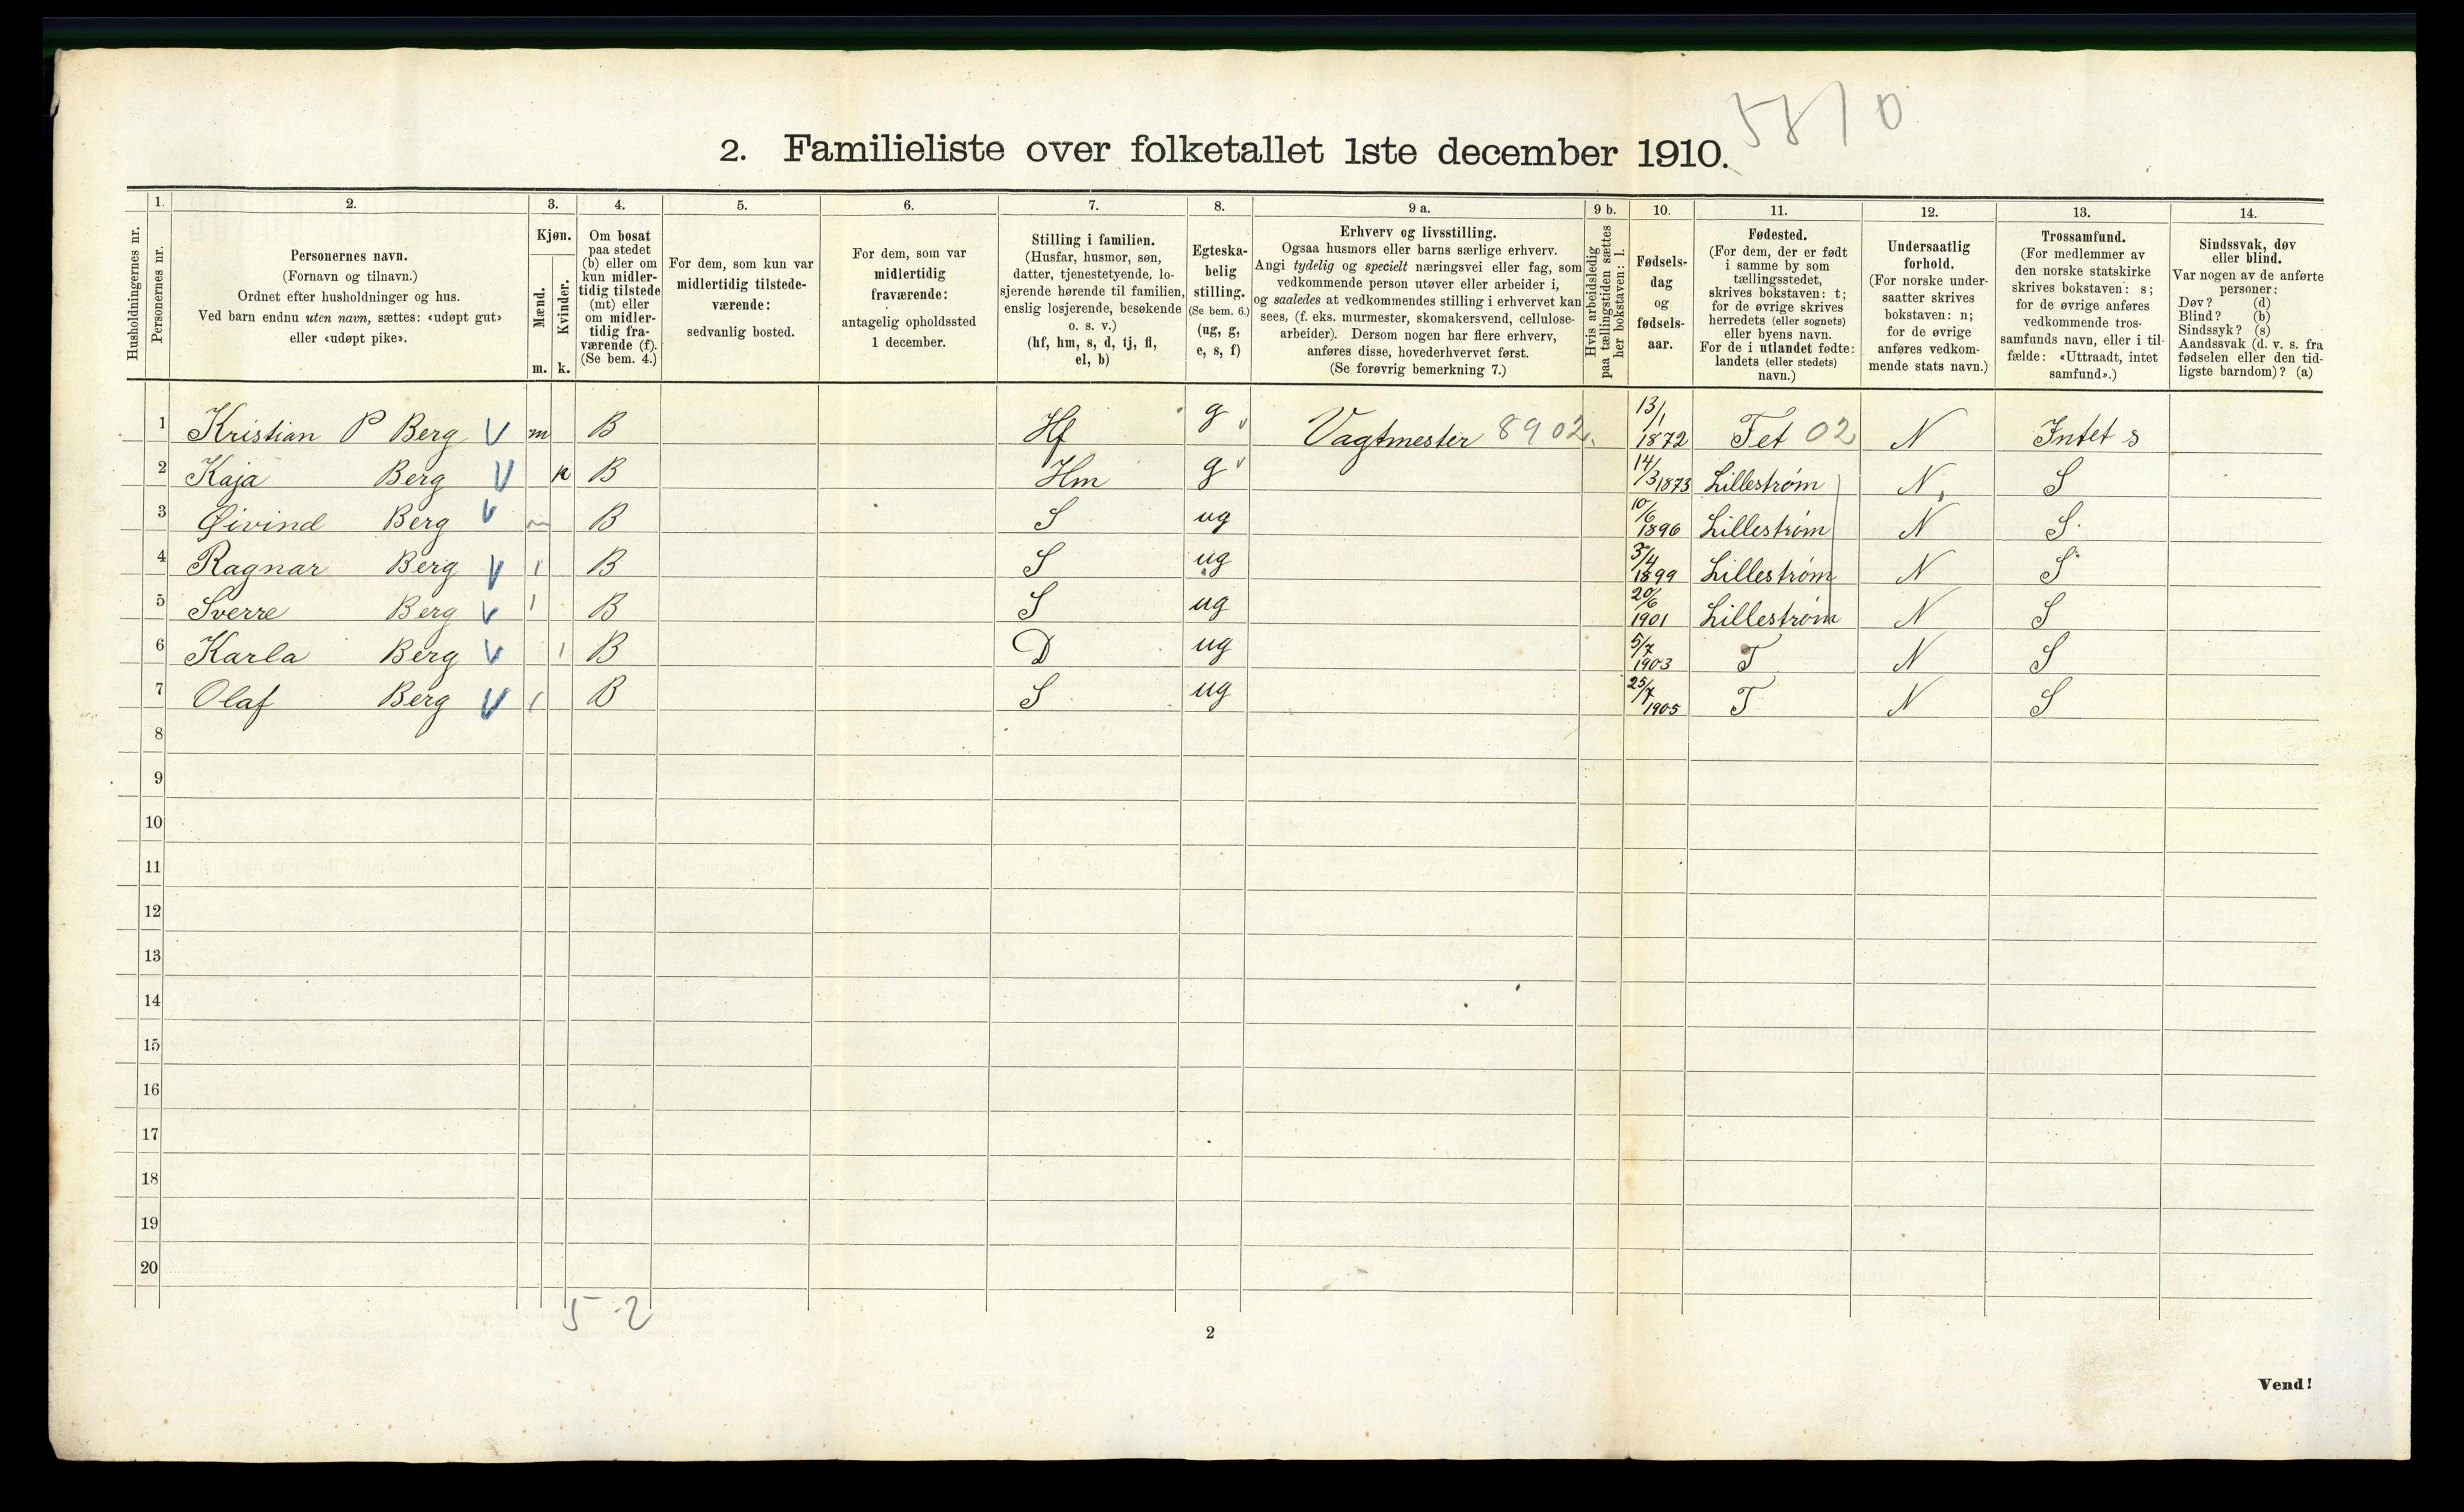 5810
2. Familieliste over folketallet 1ste december 1910.
Husholdningernes nr.
1.
Personernes nr.
2.
Personernes navn.
(Fornavn og tilnavn.)
Ordnet efter husholdninger og hus.
Ved barn endnu uten navn, sættes: «udøpt gut»
eller «udøpt pike».
3.
Kjøn.
Mænd.
Kvinder.
m. k.
4.
Om bosat
paa stedet
(b) eller om
kun midler-
tidig tilstede
(mt) eller
om midler-
tidig fra-
værende (f).
(Se bem. 4.)
5.
For dem, som kun var
midlertidig tilstede-
værende:
sedvanlig bosted.
6.
For dem, som var
midlertidig
fraværende:
antagelig opholdssted
1 december.
7.
Stilling i familien.
(Husfar, husmor, søn,
datter, tjenestetyende, lo-
sjerende hørende til familien,
enslig losjerende, besøkende
o. s. v.)
(hf, hm, s, d, tj, fl,
el, b)
8.
Egteska-
belig
stilling.
(Se bem. 6.)
(ug, g,
e, s, f)
9 a.
Erhverv og livsstilling.
Ogsaa husmors eller barns særlige erhverv.
Angi tydelig og specielt næringsvei eller fag, som
vedkommende person utøver eller arbeider i,
og saaledes at vedkommendes stilling i erhvervet kan
sees, (f. eks. murmester, skomakersvend, cellulose-
arbeider). Dersom nogen har flere erhverv,
anføres disse, hovederhvervet først.
(Se forøvrig bemerkning 7.)
9 b.
Hvis arbeidsledig
paa tællingstiden sættes
her bokstaven: l.
10.
Fødsels-
dag
og
fødsels-
aar.
11.
Fødested.
(For dem, der er født
i samme by som
tællingsstedet,
skrives bokstaven: t;
for de øvrige skrives
herredets (eller sognets)
eller byens navn.
For de i utlandet fødte:
landets (eller stedets)
navn.)
12.
Undersaatlig
forhold.
(For norske under-
saatter skrives
bokstaven: n;
for de øvrige
anføres vedkom-
mende stats navn.)
13.
Trossamfund.
(For medlemmer av
den norske statskirke
skrives bokstaven: s;
for de øvrige anføres
vedkommende tros-
samfunds navn, eller i til-
fælde: «Uttraadt, intet
samfund».)
14.
Sindssvak, døv
eller blind.
Var nogen av de anførte
personer:
Døv? (d)
Blind? (b)
Sindssyk? (s)
Aandssvak (d. v. s. fra
fødselen eller den tid-
ligste barndom)? (a)
1 Kristian P Berg V m B Hf g Vagtmester 8902. 13/1 1872 Fet 02 N Intet s
2 Kaja Berg V k B Hm g 14/3 1873 Lillestrøm N. S
3 Øivind Berg V m B S ug 10/6 1896 Lillestrøm N S.
4 Ragnar Berg V 1 B S ug 1899 Lillestrøm N S
5 Sverre Berg V 1 B S ug 20/6 1901 Lillestrøm N S
6 Karla Berg V 1 B D ug 5/7 1903 T N S
7 Olaf Berg V 1 B S ug 25/7 1905 T N S
8
9
10
11
12
13
14
15
16
17
18
19
20
5-2
2
Vend!